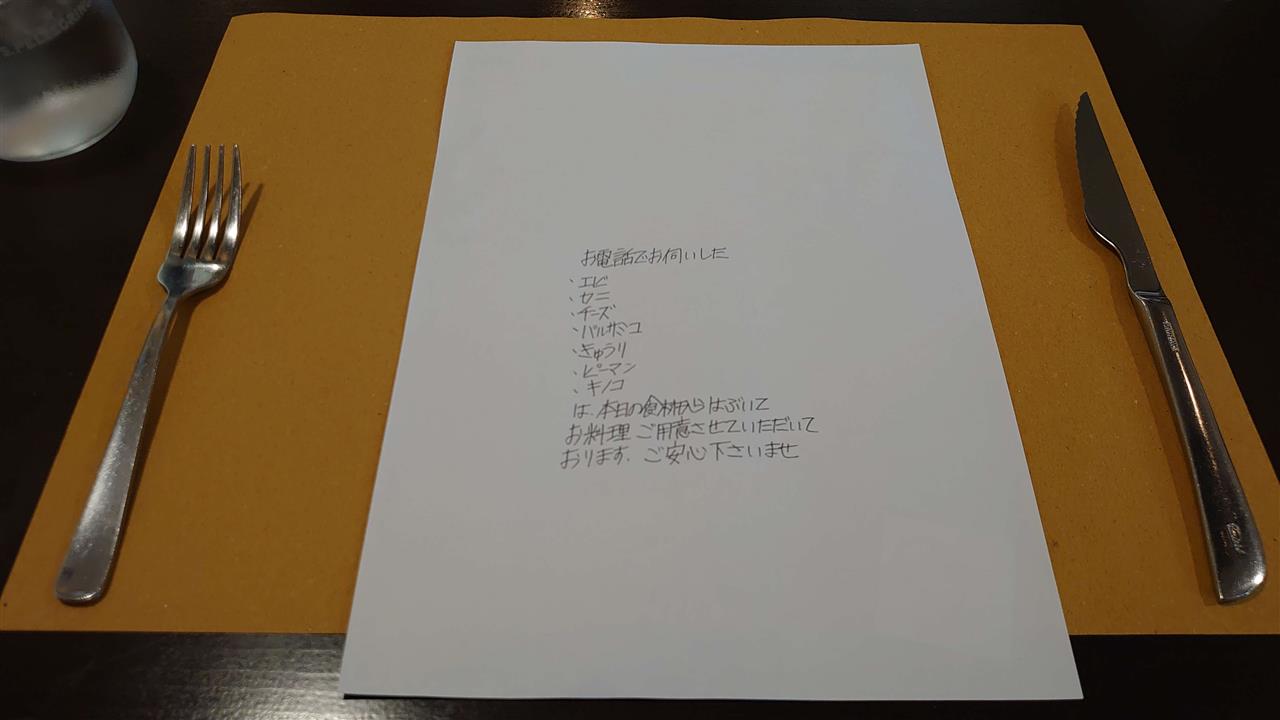 お電話でお伺いした
・エビ
・カニ
・チーズ
・バルサミコ
・きゅうり
・ピーマン
・キノコ
は、本日の食材からはぶいて
お料理ご用意させていただいて
おります。ご安心下さいませ